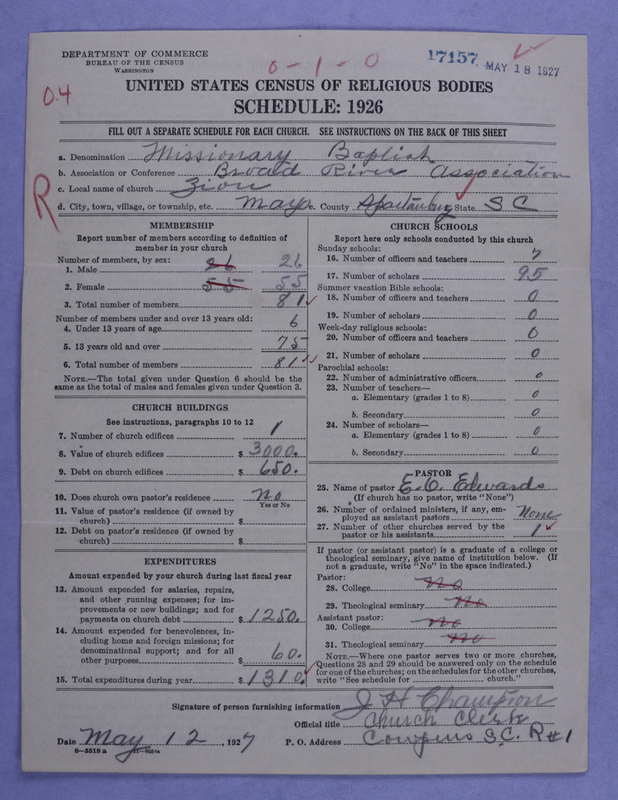 DEPARTMENT OF COMMERCE
BUREAU OF THE CENSUS
WASHINGTON
0-1-0
17157
MAY 18 1927
04
UNITED STATES CENSUS OF RELIGIOUS BODIES
SCHEDULE: 1926
FILL OUT A SEPARATE SCHEDULE FOR EACH CHURCH. SEE INSTRUCTIONS ON THE BACK OF THIS SHEET
a. Denomination Missionary Baptist
b. Association or Conference Broad River Association
c. Local name of church Zion
R
d. City, town, village, or township, etc. Mayo e. County Spartanburg State S C
MEMBERSHIP
Report number of members according to definition of
member in your church
Number of members, by sex:
1. Male 26 26
2. Female 55 55
3. Total number of members 81
Number of members under and over 13 years old:
4. Under 13 years of age 6
5. 13 years old and over 75
6. Total number of members 81
NOTE.—The total given under Question 6 should be the
same as the total of males and females given under Question 3.
CHURCH BUILDINGS
See instructions, paragraphs 10 to 12
7. Number of church edifices 1
8. Value of church edifices $ 3000.
9. Debt on church edifices $ 650.
10. Does church own pastor's residence No
Yes or No
11. Value of pastor's residence (if owned by
church) $
12. Debt on pastor's residence (if owned by
church) $
EXPENDITURES
Amount expended by your church during last fiscal year
13. Amount expended for salaries, repairs,
and other running expenses; for im-
provements or new buildings; and for
payments on church debt $ 1250.
14. Amount expended for benevolences, in-
cluding home and foreign missions; for
denominational support; and for all
other purposes $ 60.
15. Total expenditures during year $ 1310.
CHURCH SCHOOLS
Report here only schools conducted by this church
Sunday schools:
16. Number of officers and teachers 7
17. Number of scholars 95
Summer vacation Bible schools:
18. Number of officers and teachers 0
19. Number of scholars 0
Week-day religious schools:
20. Number of officers and teachers 0
21. Number of scholars 0
Parochial schools:
22. Number of administrative officers 0
23. Number of teachers—
a. Elementary (grades 1 to 8) 0
b. Secondary 0
24. Number of scholars—
a. Elementary (grades 1 to 8) 0
b. Secondary 0
PASTOR
25. Name of pastor E. O. Edwards
(If church has no pastor, write "None")
26. Number of ordained ministers, if any, em-
ployed as assistant pastors None
27. Number of other churches served by the
pastor or his assistants 1
If pastor (or assistant pastor) is a graduate of a college or
theological seminary, give name of institution below. (If
not a graduate, write "No" in the space indicated.)
Pastor:
28. College No
29. Theological seminary No
Assistant pastor:
30. College No
31. Theological seminary No
NOTE.—Where one pastor serves two or more churches,
Questions 28 and 29 should be answered only on the schedule
for one of the churches; on the schedules for the other churches,
write "See schedule for church."
Signature of person furnishing information J H Champion
Official title Church Clerk
Date May 12, 1927 P. O. Address Cowpens S.C. R#1
8—5518 a